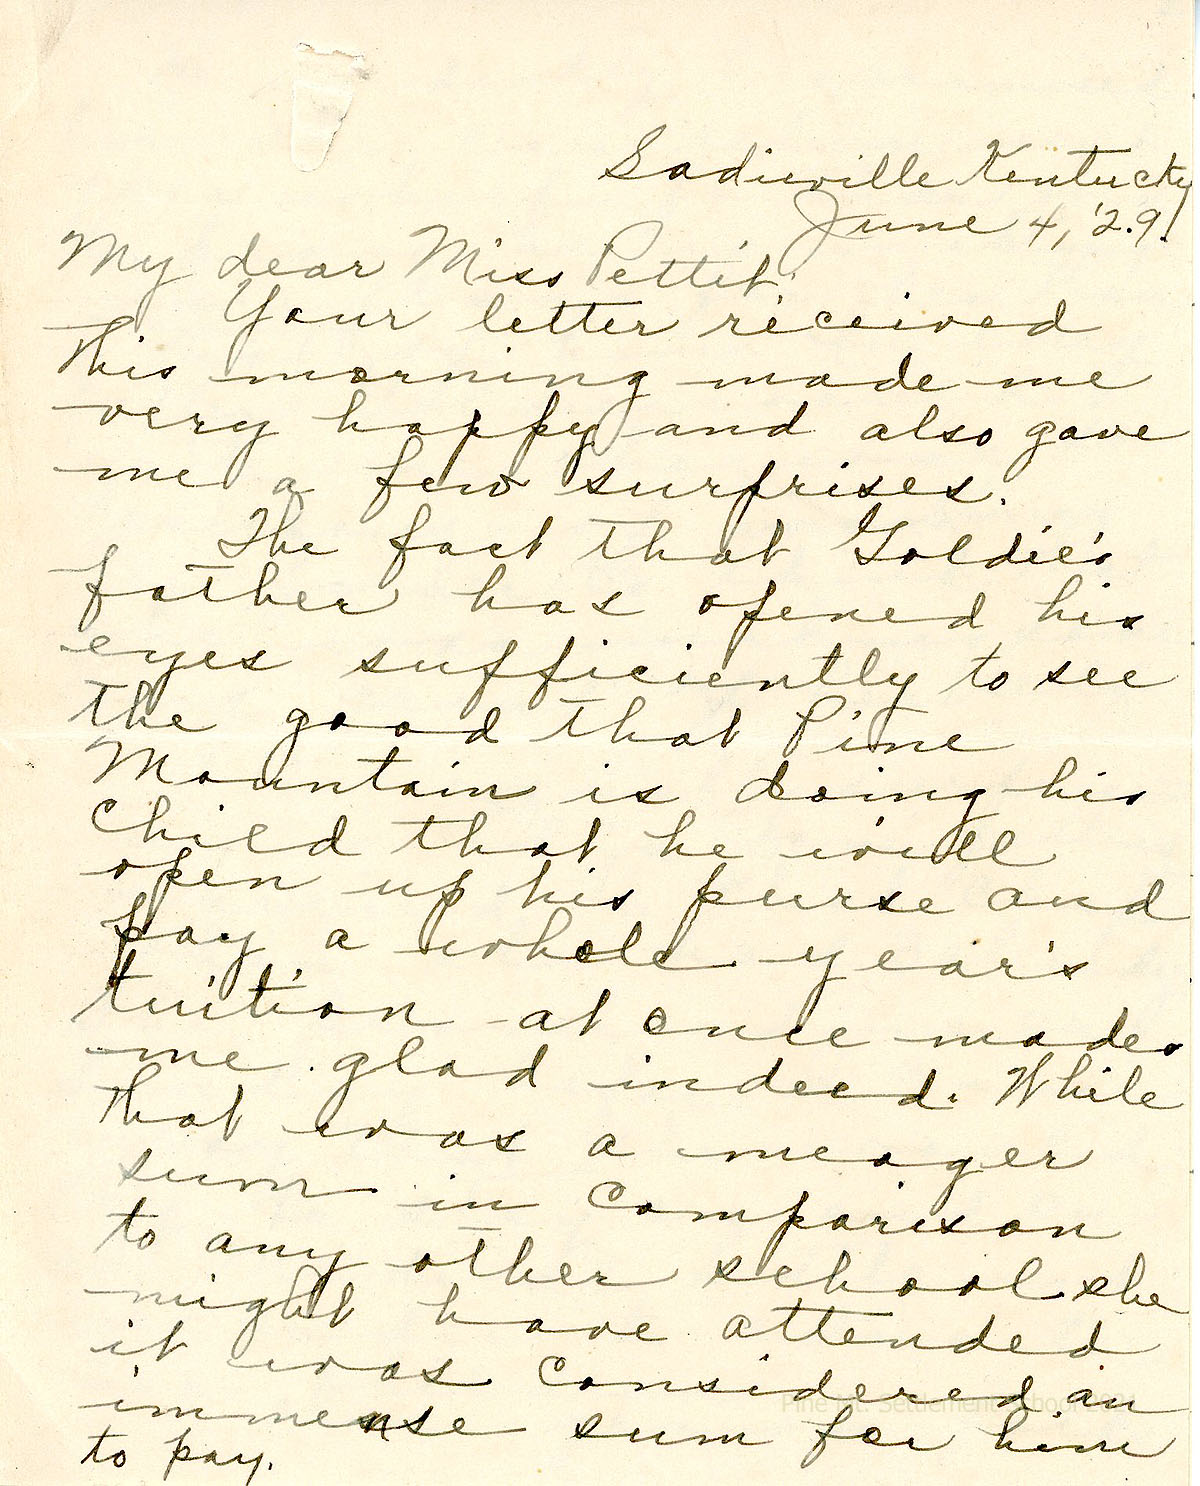 Sadieville Kentucky
June 4, '29.
My dear Miss Pettit:
Your letter received
this morning made me
very happy and also gave
me a few surprises.
The fact that Goldie's
father has opened his
eyes sufficiently to see
the good that Pine
Mountain is doing his
child that he will
open up his purse and
pay a whole year's
tuition at once made
me glad indeed. While
that was a meager
sum in comparison
to any other school she
might have attended
it was considered an
immense sum for him
to pay.
Pine Mt. Settlement School 2021